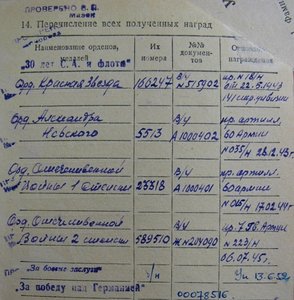 ПРОВЕРЕНО В.П.
14. Перечисление всех полученных наград
Наименование орденов, медалей
Их номера
№№ документов
Основание награждения
"30 лет С.А. и флота"
Орд. Красная Звезда 166247 В/у № 515902 пр. № 18 Н от 22.5.1943 141 стр. дивизии
Орд. Александра Невского 5513 В/у А 1000402 пр. артилл. 60 Армии № 035/Н 28.12.43г.
Орд. Отечественной Войны 1 степени 23318 В/у А 1000401 пр. артилл. 60 армии 17.02.44г
Орд. Отечественной Войны 2 степени 589510 В/у № 204090 пр. 7 Гв. Армии № 223/Н 06.07.45г.
"За боевые заслуги" б/н Ук 13.6.52
"За победу над Германией" 00078516